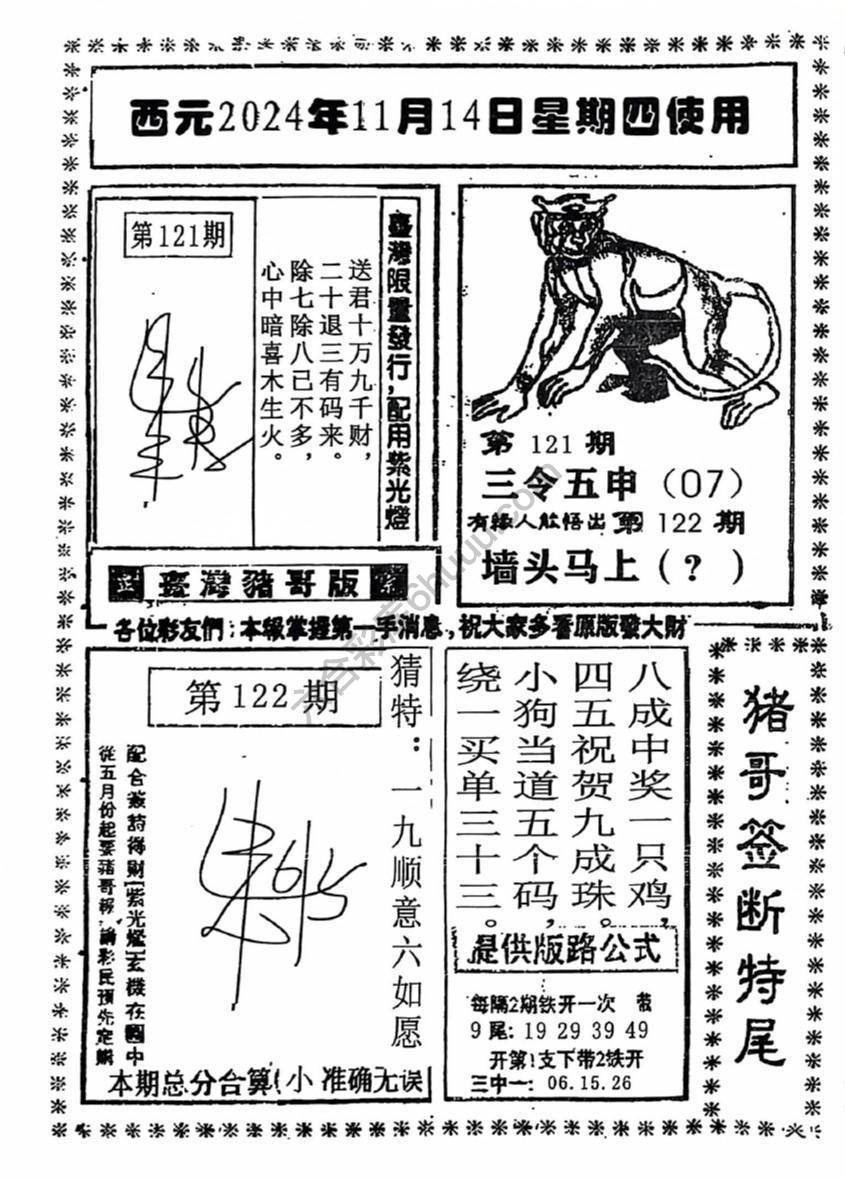 西元2024年11月14日星期四使用
第121期
臺灣限量發行，配用紫光燈
送君十万九千财，
二十退三有码来。
除七除八已不多，
心中暗喜木生火。
臺灣豬哥版
第 121 期
三令五申（07）
有緣人能悟出 第 122 期
墙头马上（？）
各位彩友們：本報掌握第一手消息，祝大家多看原版發大財
第 122 期
猜特：一九顺意六如愿
配合簽詩得財[紫光燈]玄機在圖中
從五月份起要豬哥報，請彩民預先定購
本期总分合算(小 准确无误
八成中奖一只鸡，
四五祝贺九成珠。
小狗当道五个码，
绕一买单三十三。
提供版路公式
每隔2期铁开一次 带
9 尾: 19 29 39 49
开第1支下带2铁开
三中一: 06.15.26
猪哥签断特尾
六合彩库6huuu.com